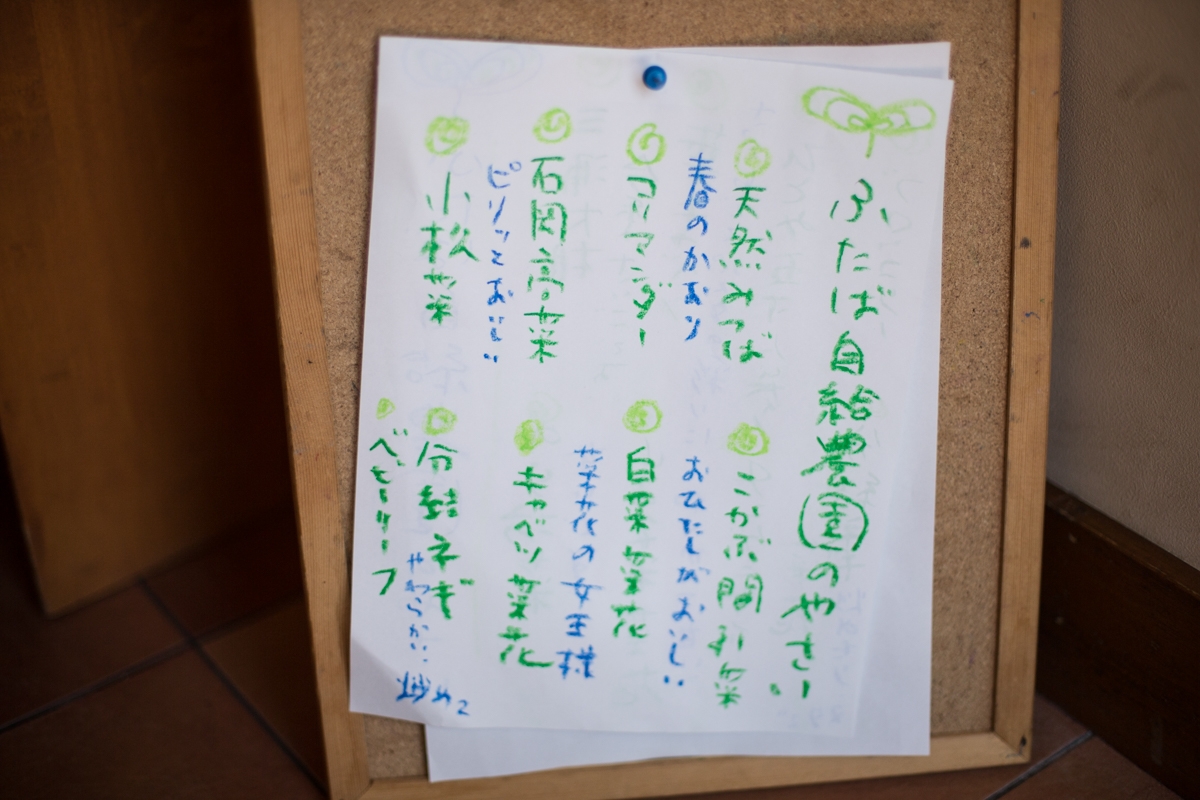 ふたば自給農園のやさい
天然みつば
春のかおり
コリアンダー
石岡高菜
ピリッとおいしい
小松菜
こかぶ間引菜
おひたしがおいしい
白菜菜花
菜花の女王様
キャベツ菜花
分けつネギ
やわらかい、
炒め
ベビーリーフ